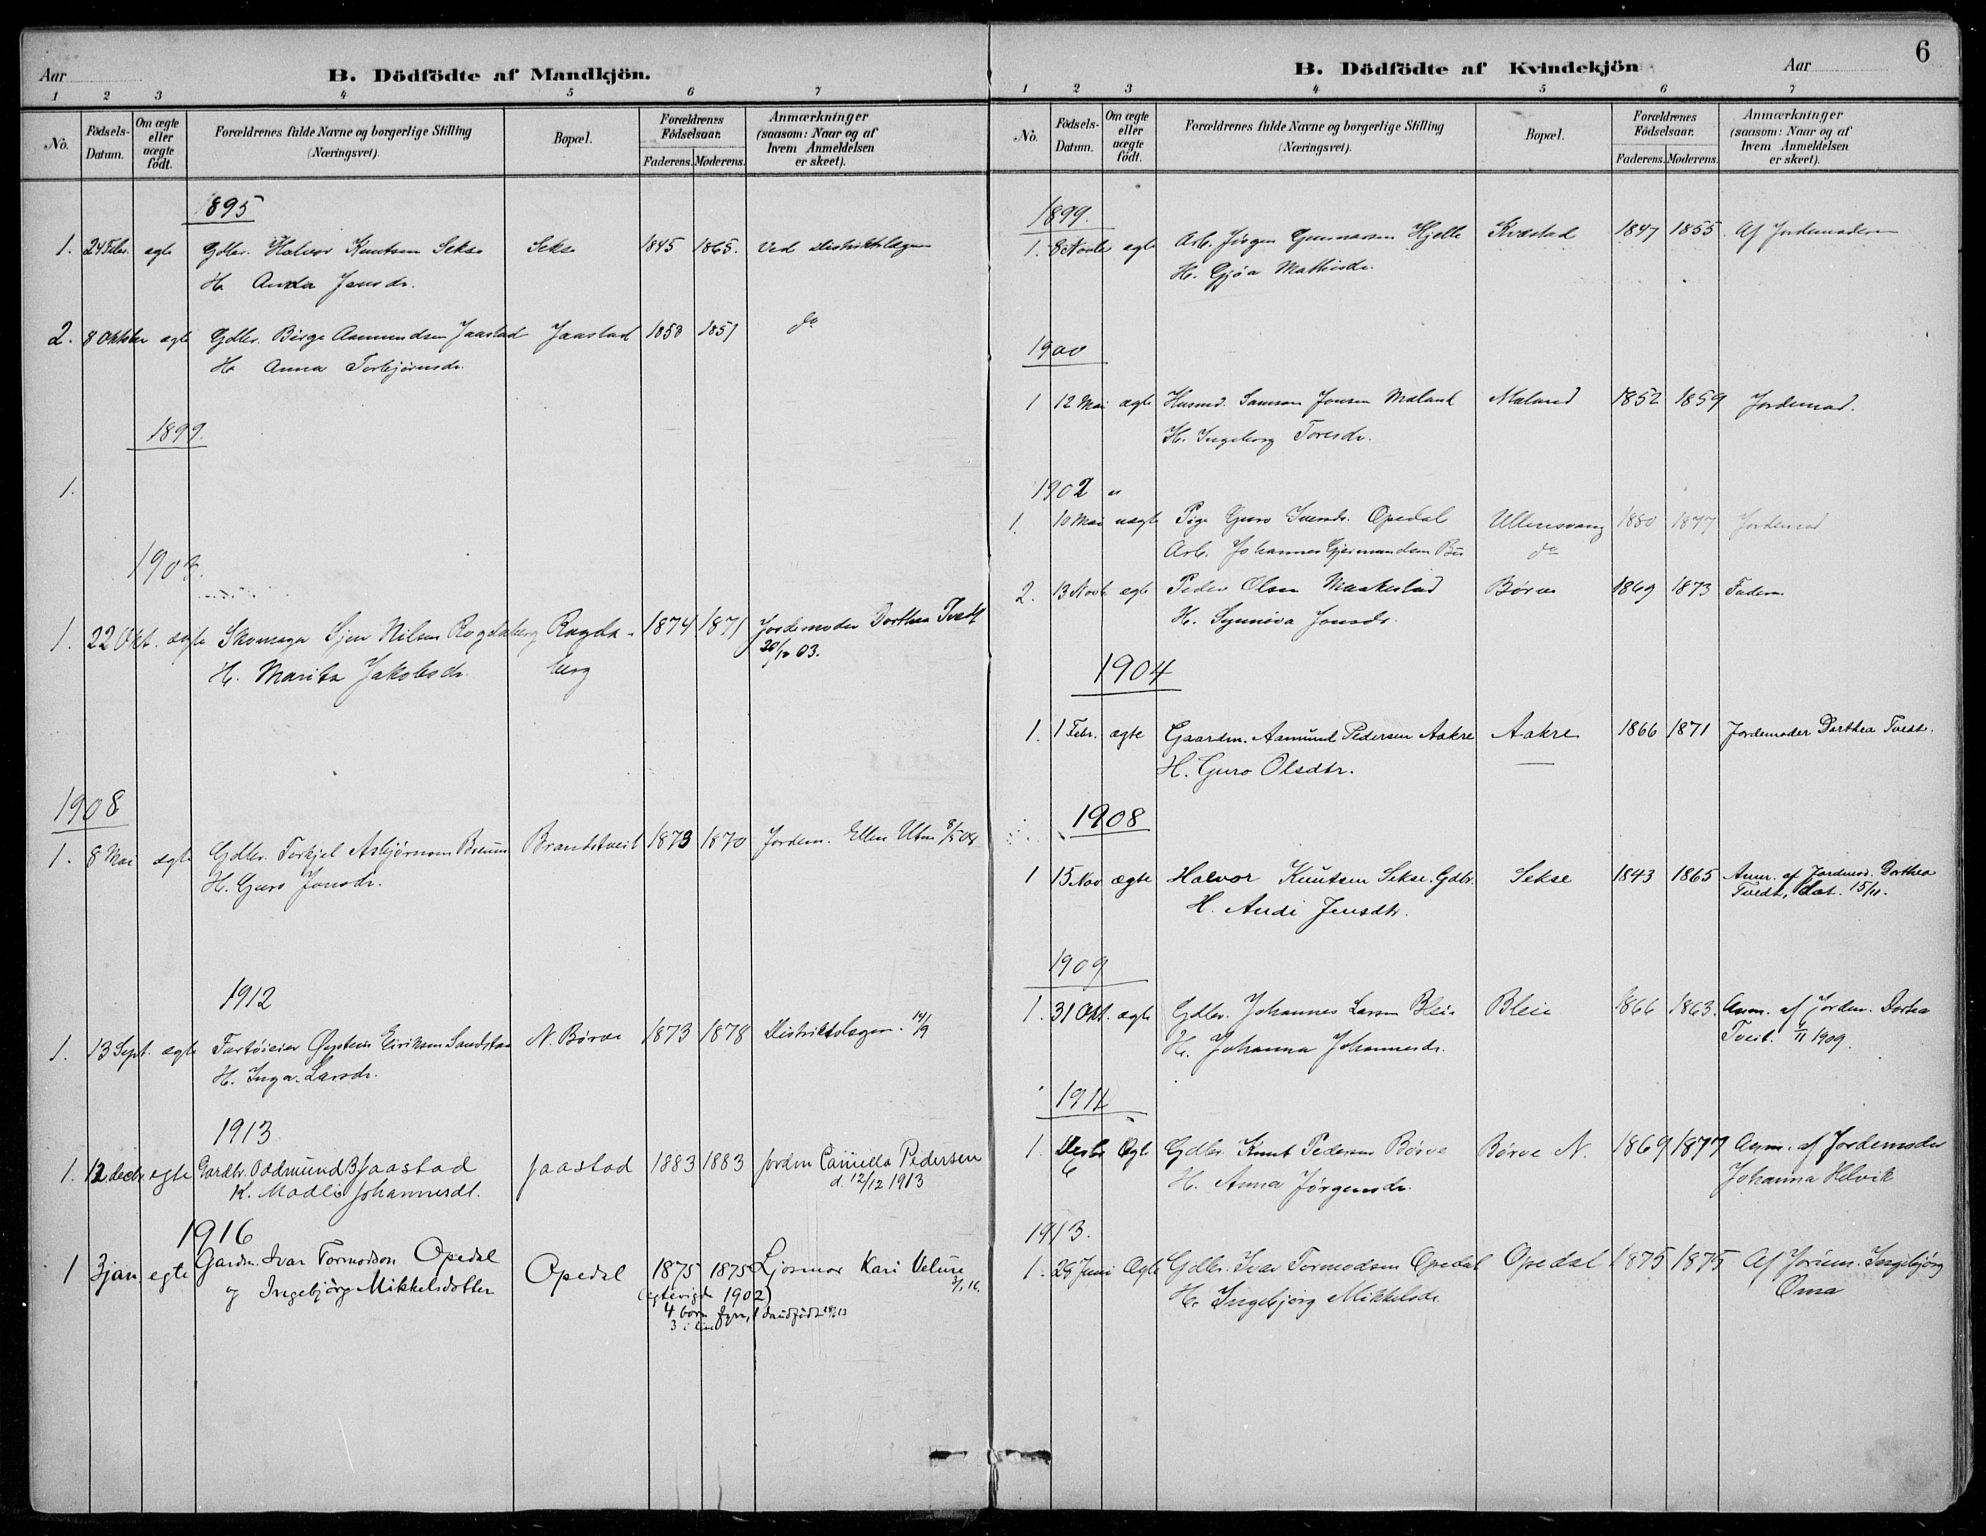 Aar
B. Dödfödte af Mandkjön.
1 2 3 4 5 6 7
No.
Födsels-Datum.
Om ægte eller uægte födt.
Forældrenes fulde Navne og borgerlige Stilling (Næringsvei).
Bopæl.
Forældrenes Födselsaar.
Faderens. Moderens.
Anmærkninger (saasom: Naar og af hvem Anmeldelsen er skeet).
1895
1. 24 Febr. egte Gdbr. Halvor Knutsen Sekse Sekse 1845 1865. Ved Distriktslægen
H. Anda Jensdr.
2. 8 Oktober egte Gdbr. Birge Aamundsen Jaastad Jaastad 1858 1851 do
H. Anna Torbjørnsdr.
1899.
1.
1903.
1. 22 Okt. ægte Skomager Sjur Nilsen Rogdaberg Rogda- 1874 1871 Jordemoder Dorthea Tvedt
H. Marita Jakobsdr. berg 30/10 03.
1908
1. 8 Mai ægte Gdbr. Torkjel Asbjørnsen Brandstveit 1873 1870 Jordem. Ellen Utne 8/5 08
H. Guro Jonsdr.
1912
1. 13 Sept. egte Fartøieier Øystein Eiriksen N. Børve 1873 1878 Distriktslegen. 14/9
H. Inga Larsdr.
1913
1. 12 decbr egte Gardbr. Oddmund B Jaastad Jaastad 1883 1883 Jordm Camilla Pedersen
K. Madli Johannesdt. d. 12/12 1913
1916
1 3 jan egte Gardm. Ivar Tormodson Opedal Opedal 1875 1875 Ljosmor Kari Velure
og Ingebjørg Mikkelsdotter (egtevigde 1902) 3/1 16.
4 born fyrr, 1 daudfødt 29/6 13
3 i live
6
B. Dödfödte af Kvindekjön
Aar
1 2 3 4 5 6 7
No.
Födsels-Datum.
Om ægte eller uægte födt.
Forældrenes fulde Navne og borgerlige Stilling (Næringsvei).
Bopæl.
Forældrenes Födselsaar.
Faderens. Moderens.
Anmærkninger (saasom: Naar og af hvem Anmeldelsen er skeet).
1899.
1. 8 Novbr egte Arb. Jørgen Gunnarsen Hjelle Kvestad 1847 1855 Af Jordemoderen
H. Gjøa Mathisdr.
1900
1 12 Mai ægte Husmd. Samson Jonsen Maland Maland 1852 1859 Jordemod.
H. Ingeborg Toresdr.
1902
1. 10 Mai uægte Pige Guro Iversdr. Opedal Ullensvang 1880 1877 Jordemod
Arb. Johannes Gjermundsen do
2. 13 Novb egte Peder Olsen Maakestad Børve 1869 1873 Faderen
H. Synneva Jonsdr.
1904
1. 1 Febr. ægte Gaardm. Aamund Pedersen Aakre Aakre 1866 1871 Jordemoder Dorthea Tvedt.
H. Guro Olsdtr.
1908
1 15 Nov ægte Halvor Knutsen Sekse. Gdbr. Sekse 1843 1865 Anm. af Jordemod. Dorthea
H. Andi Jensdtr. Tvedt, dat. 15/11.
1909
1. 31 Okt. ægte Gdbr. Johannes Larsen Bleie Bleie 1866 1863. Anm. af Jordem. Dortea
H. Johanna Johannesdr. Tveit. 6/11 1909.
1911
1. Decbr 6 Ægte Gdbr. Knut Pedersen Børve Børve N. 1869 1877 Anm. af Jordemoder
H. Anna Jørgensdr. Johanna Helvik
1913.
1. 29 Juni Ægte Gdbr. Ivar Tormodsen Opedal Opedal 1875 1875 Af Jordm. Ingebjørg
H. Ingebjørg Mikkelsdr. Oma